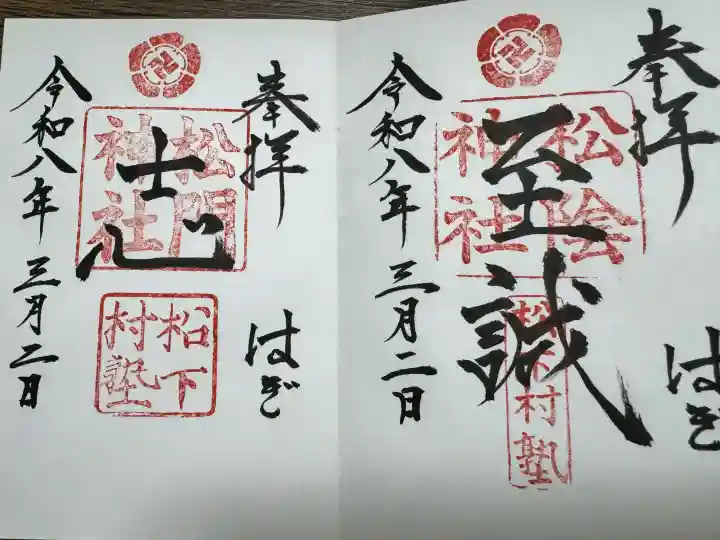 奉拝
はぎ
至誠
松陰
神社
松下村塾
令和八年三月二日
奉拝
はぎ
志
松門
神社
松下
村塾
令和八年三月二日